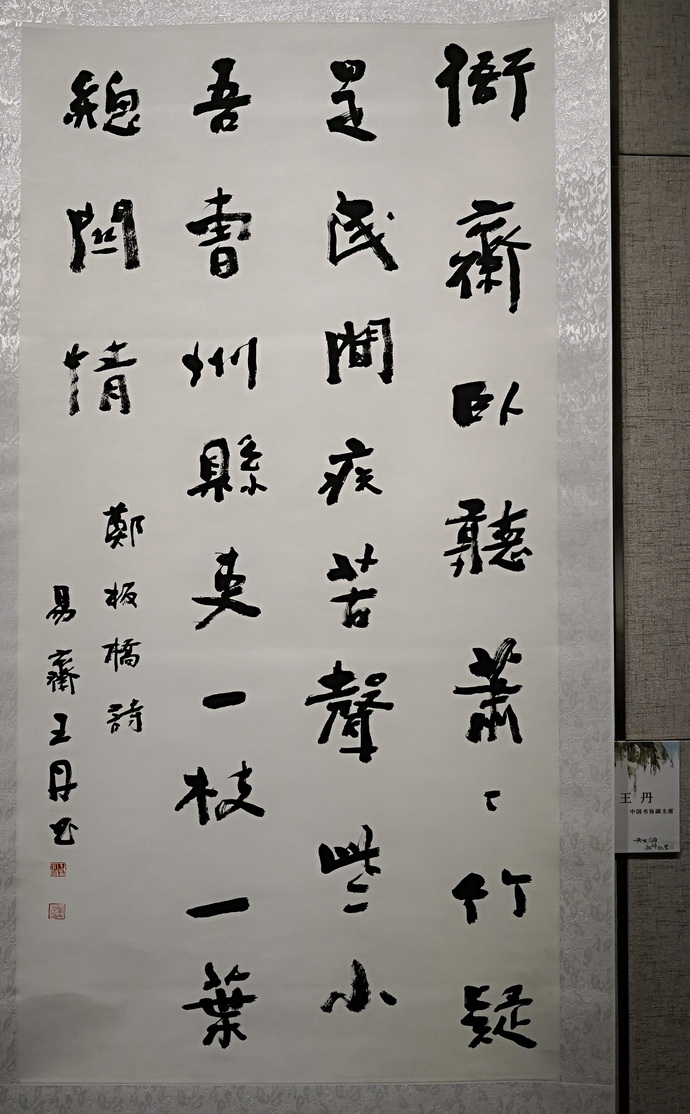 衙齋臥聽蕭〻竹疑
是民間疾苦聲些小
吾曹州縣吏一枝一葉
總關情
鄭板橋詩
易齋王丹书
王丹
中国书协副主席